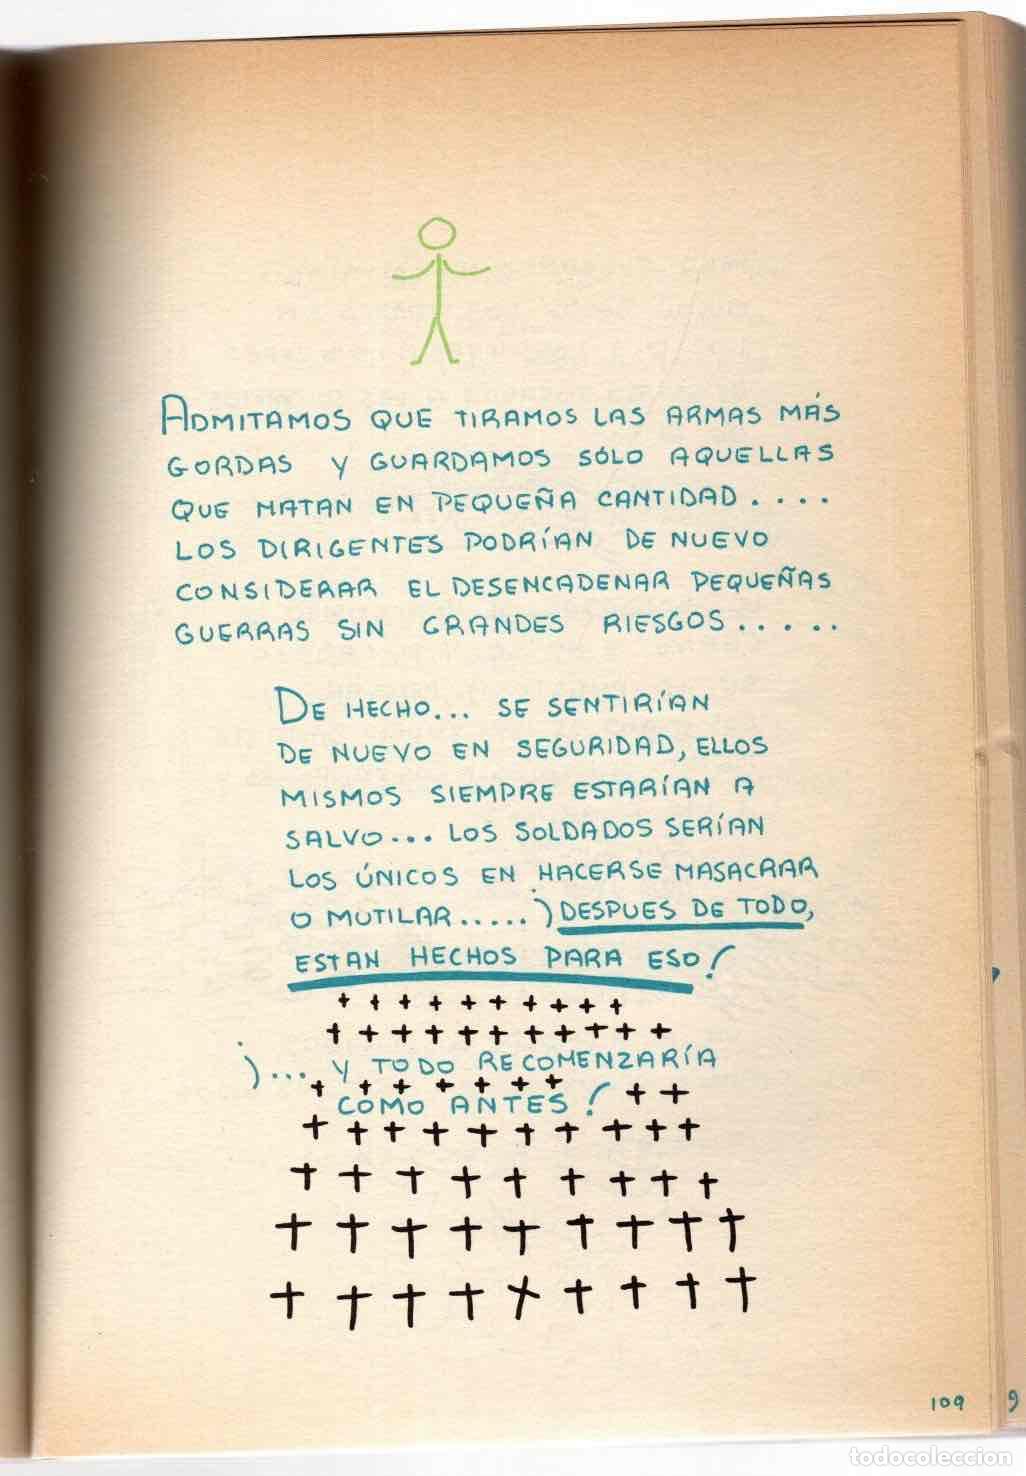 ADMITAMOS QUE TIRAMOS LAS ARMAS MÁS
GORDAS Y GUARDAMOS SÓLO AQUELLAS
QUE MATAN EN PEQUEÑA CANTIDAD ....
LOS DIRIGENTES PODRÍAN DE NUEVO
CONSIDERAR EL DESENCADENAR PEQUEÑAS
GUERRAS SIN GRANDES RIESGOS .....
DE HECHO... SE SENTIRÍAN
DE NUEVO EN SEGURIDAD, ELLOS
MISMOS SIEMPRE ESTARÍAN A
SALVO... LOS SOLDADOS SERÍAN
LOS ÚNICOS EN HACERSE MASACRAR
O MUTILAR ..... ¡DESPUES DE TODO,
ESTAN HECHOS PARA ESO!
¡... Y TODO RECOMENZARÍA
COMO ANTES!
109
9
todocoleccion